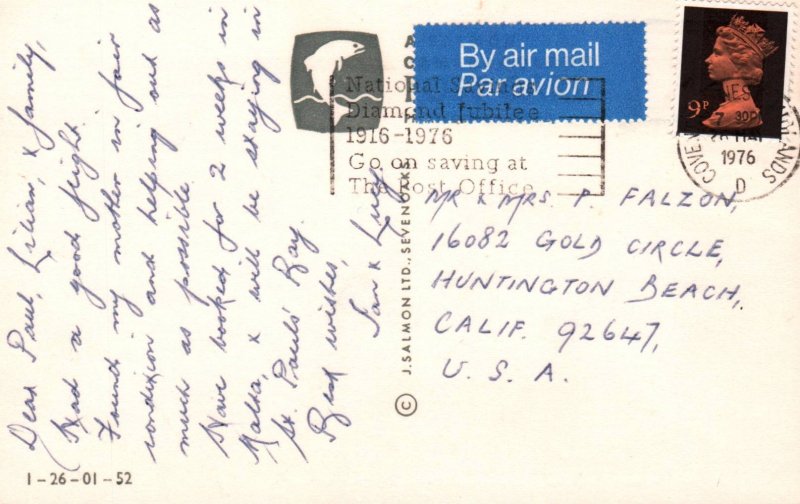 Dear Paul, Lilian, & family,
Had a good flight.
Found my mother in fair
condition and helping out as
much as possible.
Have booked for 2 weeks in
Malta, & will be staying in
St. Pauls' Bay.
Best wishes,
Ian & Lucy
1-26-01-52
© J. SALMON LTD., SEVENOAKS
By air mail
Par avion
National Savings
Diamond Jubilee
1916-1976
Go on saving at
The Post Office
9P
7 30PM
1976
D
MR & MRS. P. FALZON,
16082 GOLD CIRCLE,
HUNTINGTON BEACH,
CALIF. 92647,
U. S. A.